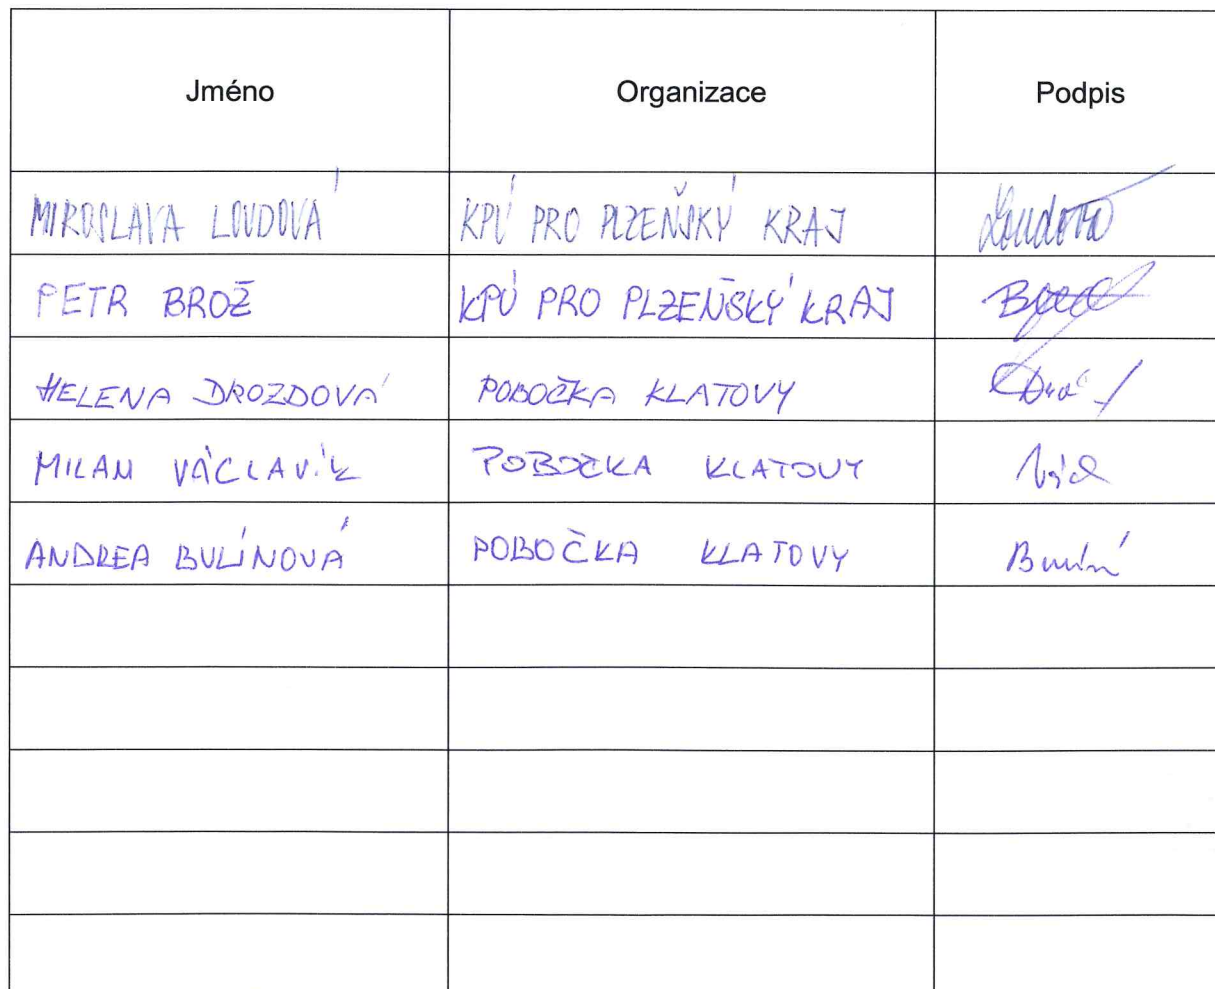 Jméno Organizace Podpis
MIROSLAVA LOUDOVÁ KPÚ PRO PLZEŇSKÝ KRAJ Loudová
PETR BROŽ KPÚ PRO PLZEŇSKÝ KRAJ
HELENA DROZDOVÁ POBOČKA KLATOVY
MILAN VÁCLAVÍK POBOČKA KLATOVY
ANDREA BULÍNOVÁ POBOČKA KLATOVY